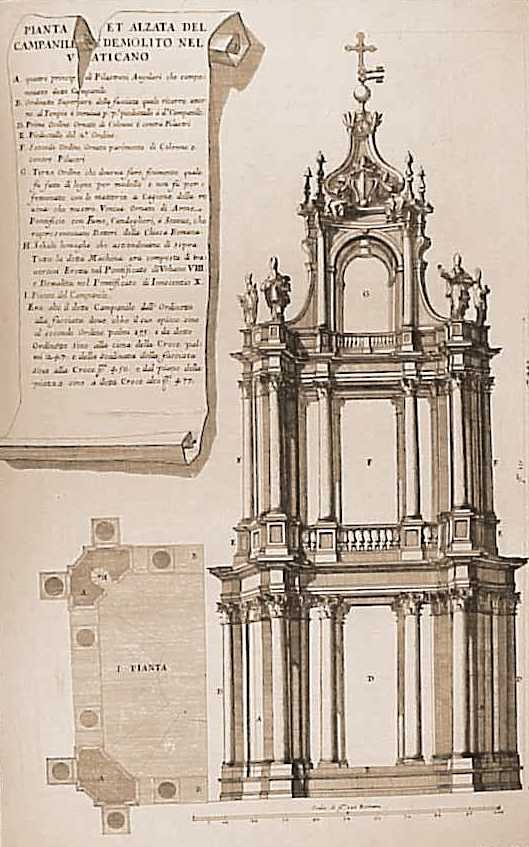 PIANTA ET ALZATA DEL
CAMPANILE DEMOLITO NEL
VATICANO
A. quatro principali Pilastroni Angolari che compo
neuano detto Campanile
B. Ordinato Superiore della facciata quale ricorre
al Tempio e seruiua p. piedestallo a d.º Campanile
D. Primo Ordine Ornato di Colonne e contro Pilastri
E. Piedestallo del 2.º Ordine
F. Secondo Ordine Ornato parimente di Colonne e
contro Pilastri
G. Terzo Ordine che doueua fare finimento quale
fu fatto di legno per modello e non fu per
con le mattera a Cagione della ro
uina che mostro Veniua Ornato di Arme
Pontificie con Fame, Candeglieri, e Statue, che
rappresentauano Dottori della Chiesa Romana
H. Schale lumagha che ascendeuano di sopra
Tutta la detta Machina era composta di tra
uertini Eretta nel Pontificato di Urbano VIII
e Demolita nel Pontificato di Innocentio X
I. Pianta del Campanile
Era alto il detto Campanile dall' Ordinatto
alla facciata doue
al secondo Ordine palmi 177 e da detto
Ordinatto sino alla cima della Croce pal
mi 247 e dalla Scalinata della facciata
sino alla Croce p.mi 450 e dal piano della
piazza sino a detta Croce alto p.mi 477
G
F
F
F
E
E
D
D
D
A
B
H
A
I PIANTA
A
B